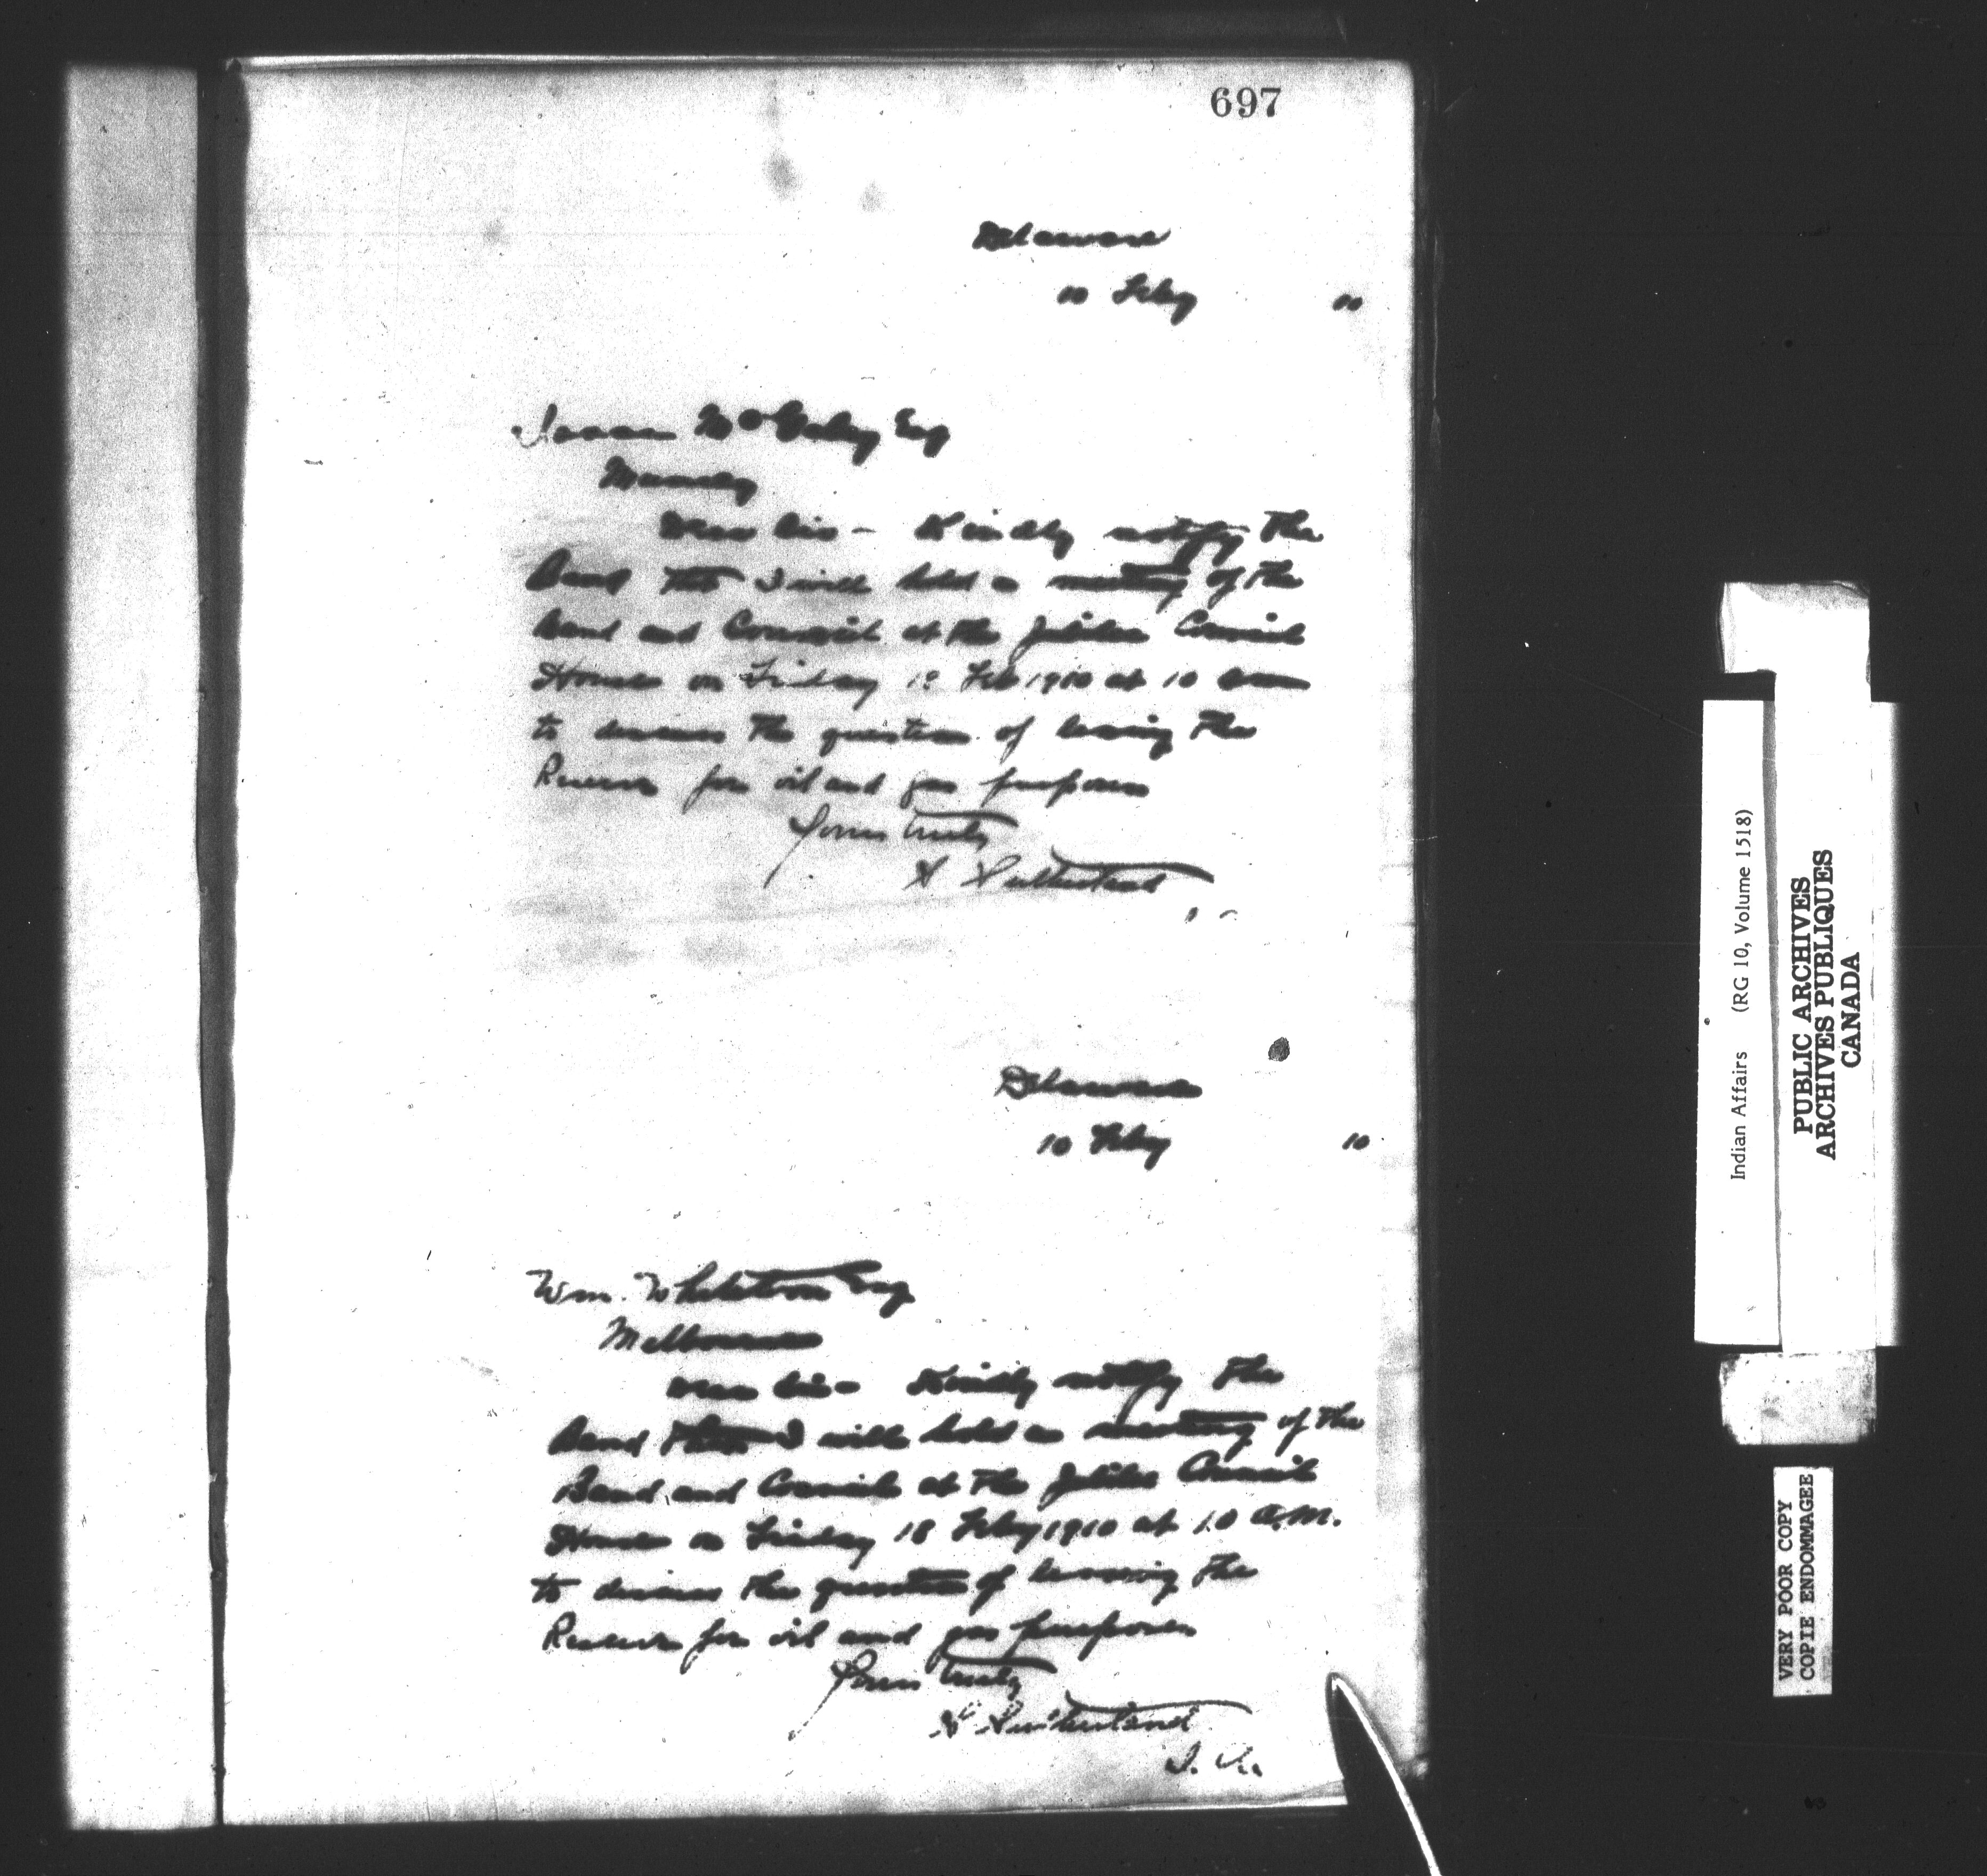 697
Delaware
10 Feby 10
Isaac McGaley Esq
Muncey
Dear Sir - Kindly notify the
Band that I will hold a meeting of the
Band and Council at the Jubilee Council
House on Friday 18 Feb 1910 at 10 am
to discuss the question of leasing the
Reserve for oil and gas purposes
Yours truly
S Sutherland
Delaware
10 Feby 10
Wm. Whetstone Esq
Melbourne
Dear Sir - Kindly notify the
Band that I will hold a meeting of the
Band and Council at the Jubilee Council
House on Friday 18 Feby 1910 at 10 A.M.
to discuss the question of leasing the
Reserve for oil and gas purposes
Yours truly
S Sutherland
I. A.
Indian Affairs (RG 10, Volume 1518)
PUBLIC ARCHIVES
ARCHIVES PUBLIQUES
CANADA
VERY POOR COPY
COPIE ENDOMMAGEE